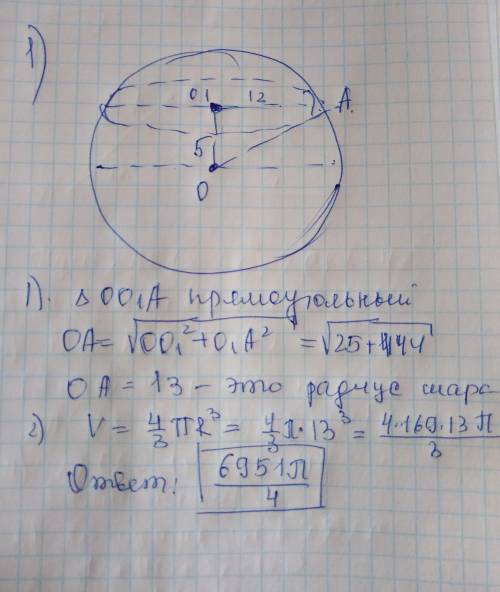 1)
O1 12 A.
5
O
1). ΔOO₁A прямоугольный
OA = √OO₁² + O₁A² = √25 + 144
OA = 13 – это радиус шара
2) V = 4/3 πR³ = 4/3 π · 13³ = 4·169·13 π/3
Ответ: 6951π/4